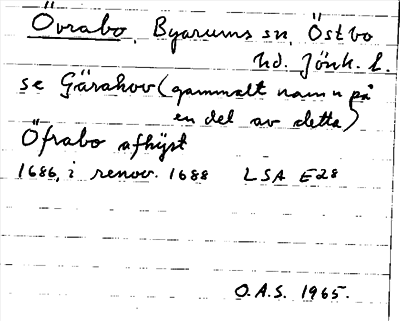 Övrabo, Byarums sn, Östbo
hd. Jönk. l.
se Gärahov (gammalt namn på
en del av detta)
Öfrabo afhyst
1686, i renov. 1688 LSA E28
O.A.S. 1965.